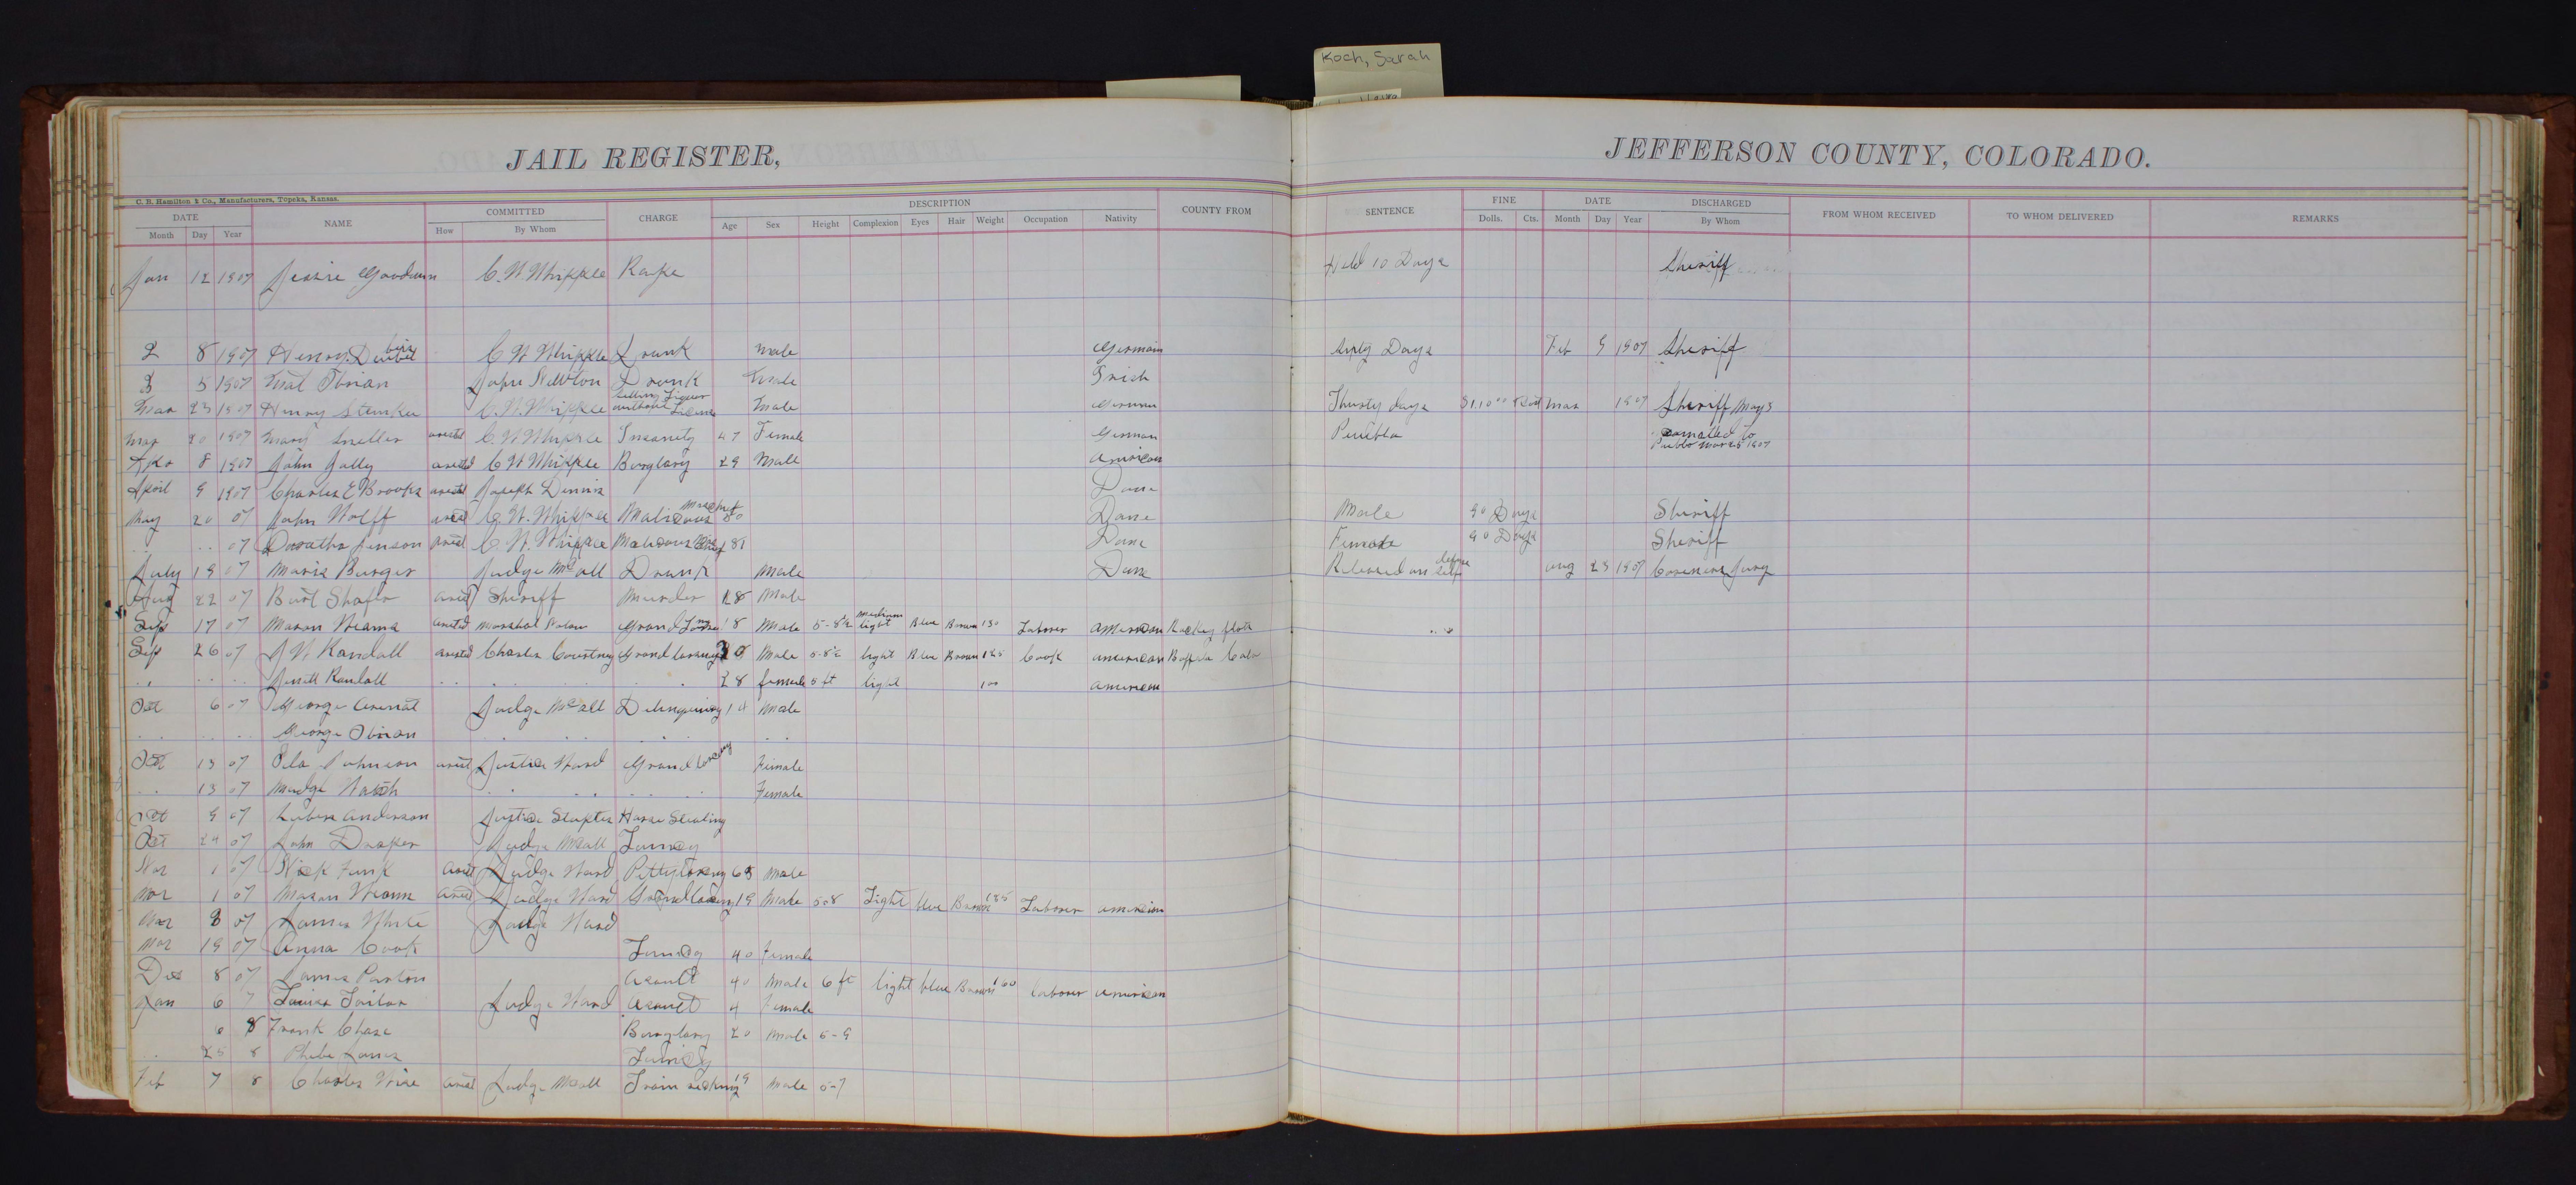 Koch, Sarah
JAIL REGISTER,
JEFFERSON COUNTY, COLORADO.
C. B. Hamilton & Co., Manufacturers, Topeka, Kansas.
DATE NAME COMMITTED CHARGE DESCRIPTION COUNTY FROM SENTENCE FINE DATE DISCHARGED FROM WHOM RECEIVED TO WHOM DELIVERED REMARKS
Month Day Year How By Whom Age Sex Height Complexion Eyes Hair Weight Occupation Nativity Dolls. Cts. Month Day Year By Whom
Jan 12 1907 Jessie Goodwin C. W Whipple Rape Held 10 Days Sheriff
2 8 1907 Henry C W Whipple Drunk Male German Days Feb 9 1907 Sheriff
3 5 1907 Mat Obrian John Newton Drunk Male Irish
Mar 23 1907 Henry C. W. Whipple Selling Liquor without License Male German Thirty days Mar 1907 Sheriff
Mar 20 1907 Mary arested C. W Whipple Insanity 47 Female German Puebla to Pueblo Mar 25 1907
Apr 8 1907 John Jolly arested C W Whipple Burglary 29 Male American
April 9 1907 Charles E Brooks arested Joseph Dennis Dane
May 20 07 John Wolff C. W. Whipple Malicous 50 Dane Male 90 Days Sheriff
.. .. 07 Doratha Jenson C. W. Whipple Malicous Dane Female 90 Days Sheriff
July 19 07 Maris Burger Judge McCall Drunk Male Dane Released on self defense Aug 23 1907 Coreners Jury
Aug 22 07 Burt Shafer Sheriff Murder 28 Male
Sep 17 07 Mason arested Marshal Grand 18 Male 5-8½ medium light Blue Brown 130 Laborer American
Sep 26 07 J W Randall arested Charles Courtney Grand Larceny 30 Male 5-8½ light Blue Brown 125 Cook American Buffalo Colo
.. .. .. Randall .. . . 28 female 5 ft light 100 American
Oct 6 07 George Judge McCall 14 Male
.. .. .. George Obrian
Oct 13 07 Johnson Justice Ward Grand Larceny Female
.. 13 07 Madge Female
Oct 9 07 Anderson Justice Horse Stealing
Oct 24 07 John Judge McCall Lunacy
Nov 1 07 Nick Funk Judge Ward Petty 65 Male
Nov 1 07 Mason Judge Ward Grand 19 Male 5-8 Light blue Brown Laborer American
Nov 8 07 James White Judge Ward
Nov 19 07 Anna Cook Lunacy 40 Female
Dec 8 07 James Assault 40 Male 6 ft light blue Brown 160 laborer American
Jan 6 7 Judge Ward Assault 4 Female
6 8 Frank Chase Burglary 20 Male 5-9
.. 25 8 Phebe Lunicy
Feb 7 8 Charles Wise Judge McCall Train 19 Male 5-7